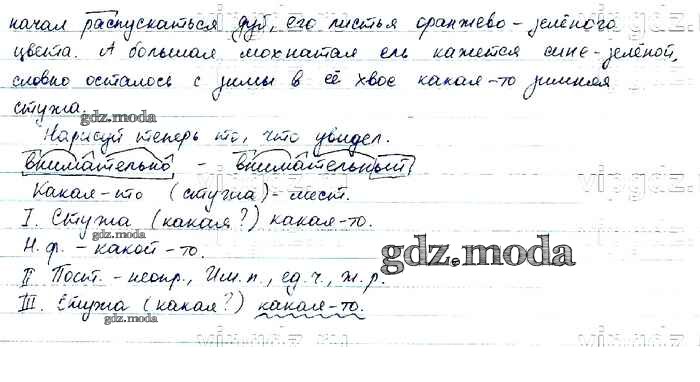 начал распускаться дуб, его листья оранжево-зелёного
цвета. А большая мохнатая ель кажется сине-зелёной,
словно осталось с зимы в её хвое какая-то зимняя
стужа.
gdz.moda
Нарисуй теперь то, что увидел.
внимательно - внимательный.
Какая-то (стужа) - мест.
I. Стужа (какая?) какая-то.
gdz.moda
Н.ф. - какой-то.
gdz.moda
II Пост. - неопр., Им.п., ед.ч., ж.р.
III. Стужа (какая?) какая-то.
gdz.moda